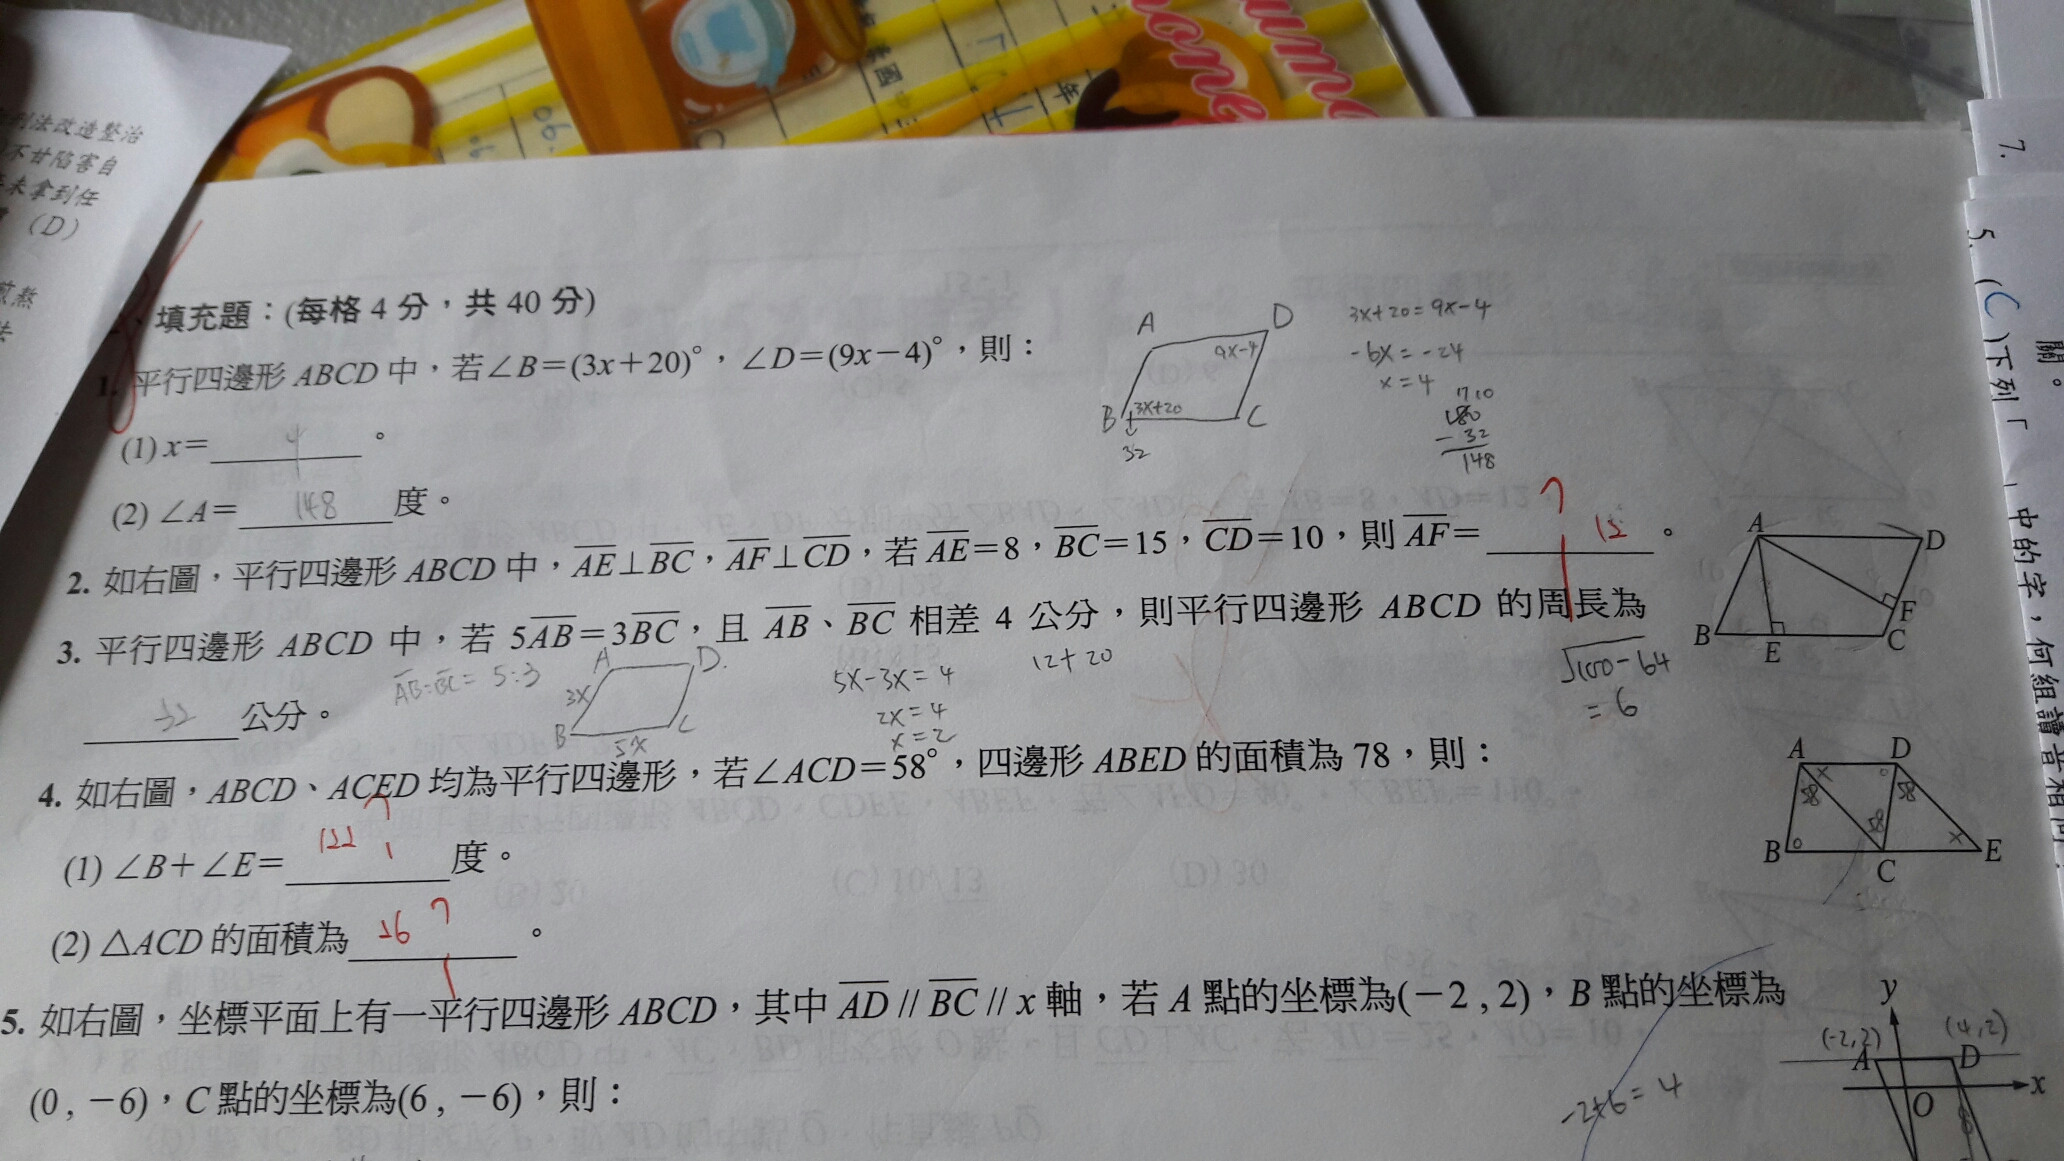 刑法改造整治
不甘陷害自
未拿到任
(D)
填充題：(每格 4 分，共 40 分)
1. 平行四邊形 ABCD 中，若∠B＝(3x＋20)°，∠D＝(9x－4)°，則：
(1) x＝ 4 。
(2) ∠A＝ 148 度。
A D
9x-4
B 3x+20 C
32
3x+20=9x-4
-6x=-24
x=4
180
-32
148
2. 如右圖，平行四邊形 ABCD 中，AE⊥BC，AF⊥CD，若 AE＝8，BC＝15，CD＝10，則 AF＝ 12 。
A D
F
B E C
√100-64
=6
3. 平行四邊形 ABCD 中，若 5AB＝3BC，且 AB、BC 相差 4 公分，則平行四邊形 ABCD 的周長為
32 公分。
AB:BC=5:3
A D
3x
B 5x C
5x-3x=4
2x=4
x=2
12+20
4. 如右圖，ABCD、ACED 均為平行四邊形，若∠ACD＝58°，四邊形 ABED 的面積為 78，則：
(1) ∠B＋∠E＝ 122 度。
(2) △ACD 的面積為 26 。
A D
58 58
58
B C E
5. 如右圖，坐標平面上有一平行四邊形 ABCD，其中 AD // BC // x 軸，若 A 點的坐標為(－2 , 2)，B 點的坐標為
(0 , －6)，C 點的坐標為(6 , －6)，則：
-2+6=4
y
(-2,2) (4,2)
A D
x
O
7.
關。
5. (C)下列「
」中的字，何組讀音相同